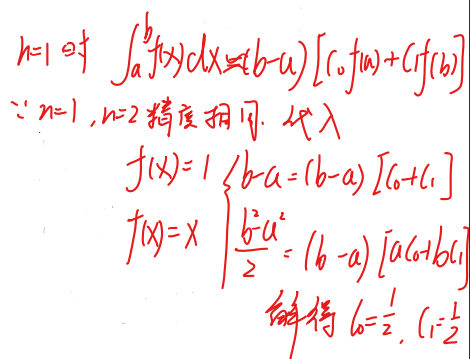 n=1时 ∫_a^b f(x)dx≈(b-a)[C₀f(a)+C₁f(b)]
∵n=1,n=2精度相同.代入
f(x)=1 { b-a=(b-a)[C₀+C₁]
f(x)=x { (b²-a²)/2=(b-a)[aC₀+bC₁]
解得 C₀=1/2, C₁=1/2